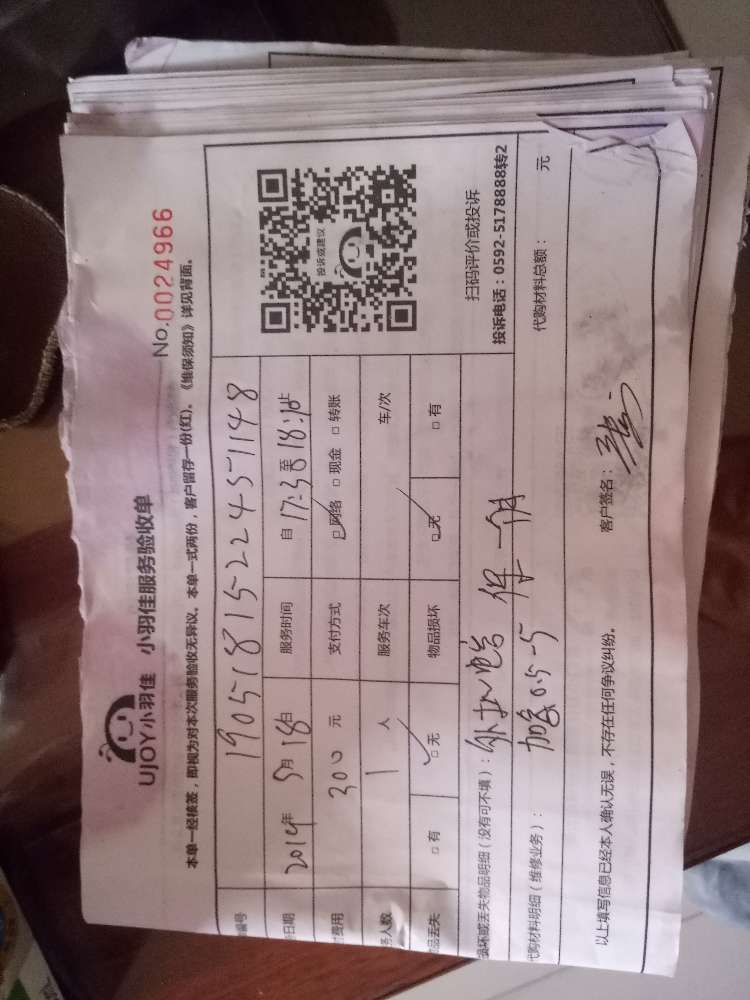 UJOY小羽佳 小羽佳服务验收单
No.0024966
本单一经核签，即视为对本次服务验收无异议。本单一式两份，客户留存一份(红)。《维保须知》详见背面。
编号 1905181522451148
日期 2019年 5月 18日 服务时间 自 17:30至 18:10止
费用 300 元 支付方式 □网络 □现金 □转账
务人数 1 人 服务车次 车/次
品丢失 □有 □无 物品损坏 □无 □有
投诉或建议
扫码评价或投诉
投诉电话：0592-5178888转2
损坏或丢失物品明细（没有可不填）： 保一月
代购材料明细（维修业务）： 加氟0.5-5
代购材料总额： 元
以上填写信息已经本人确认无误，不存在任何争议纠纷。 客户签名：